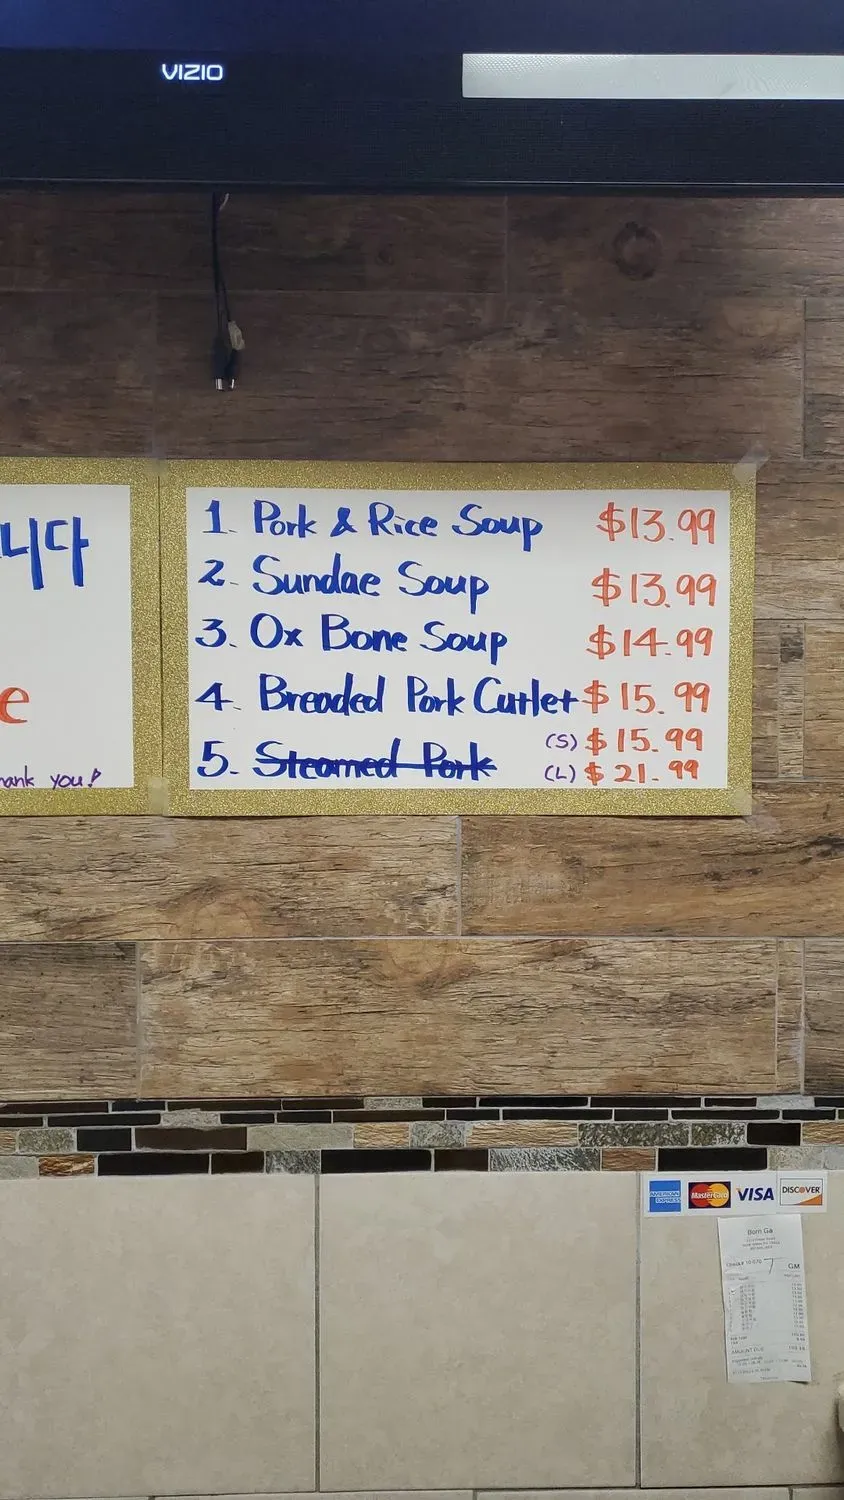 VIZIO
니다
e
hank you!
1. Pork & Rice Soup $13.99
2. Sundae Soup $13.99
3. Ox Bone Soup $14.99
4. Breaded Pork Cutlet $15.99
5. Steamed Pork (S) $15.99
(L) $21.99
AMERICAN EXPRESS MasterCard VISA DISCOVER
Born Ga
GM
AMOUNT DUE